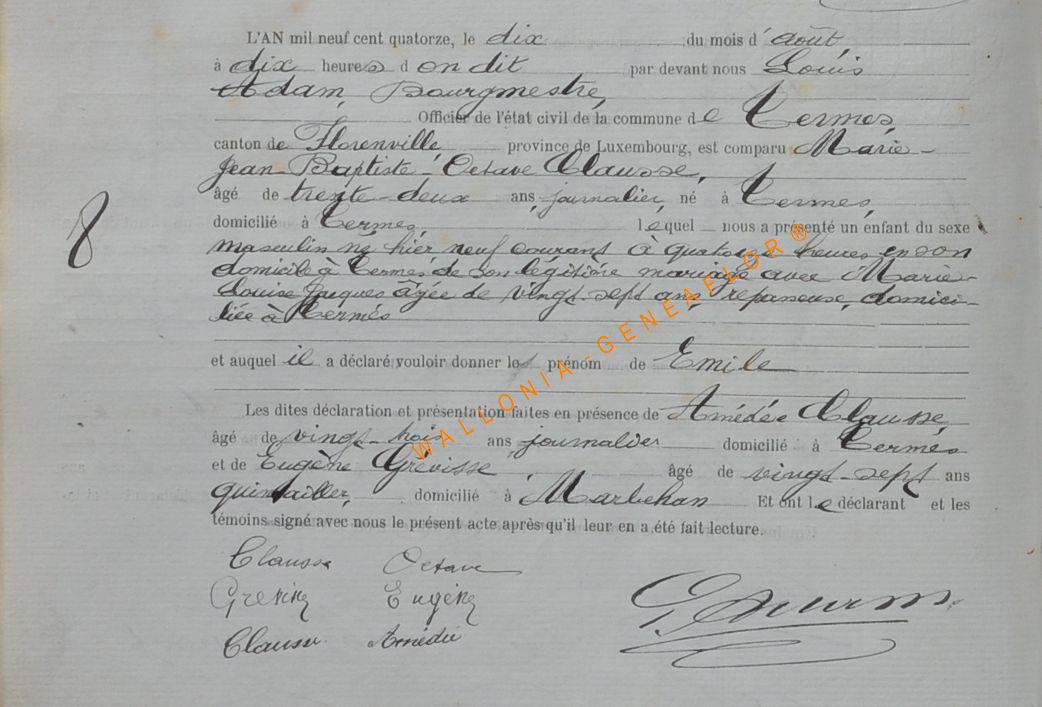 L'AN mil neuf cent quatorze, le dix du mois d'août,
à dix heures d on dit par devant nous Louis
Adam, Bourgmestre,
Officier de l'état civil de la commune de Termes,
canton de Florenville, province de Luxembourg, est comparu Marie-
Jean-Baptiste-Octave Clausse,
âgé de trente-deux ans, journalier, né à Termes,
domicilié à Termes, lequel nous a présenté un enfant du sexe
8
masculin né hier neuf courant à quatorze heures en son
domicile à Termes de son légitime mariage avec Marie-
Louise Jacques âgée de vingt-sept ans, repasseuse, domici-
liée à Termes
et auquel il a déclaré vouloir donner le prénom de Emile
Les dites déclaration et présentation faites en présence de Amédée Clausse,
âgé de vingt-trois ans journalier domicilié à Termes
et de Eugène Grévisse âgé de vingt-sept ans
quintailler, domicilié à Marbehan Et ont le déclarant et les
témoins signé avec nous le présent acte après qu'il leur en a été fait lecture.
Clausse Octave
Grevisse Eugène
Clausse Amédée
WALLONIA-GENEAFLOR®